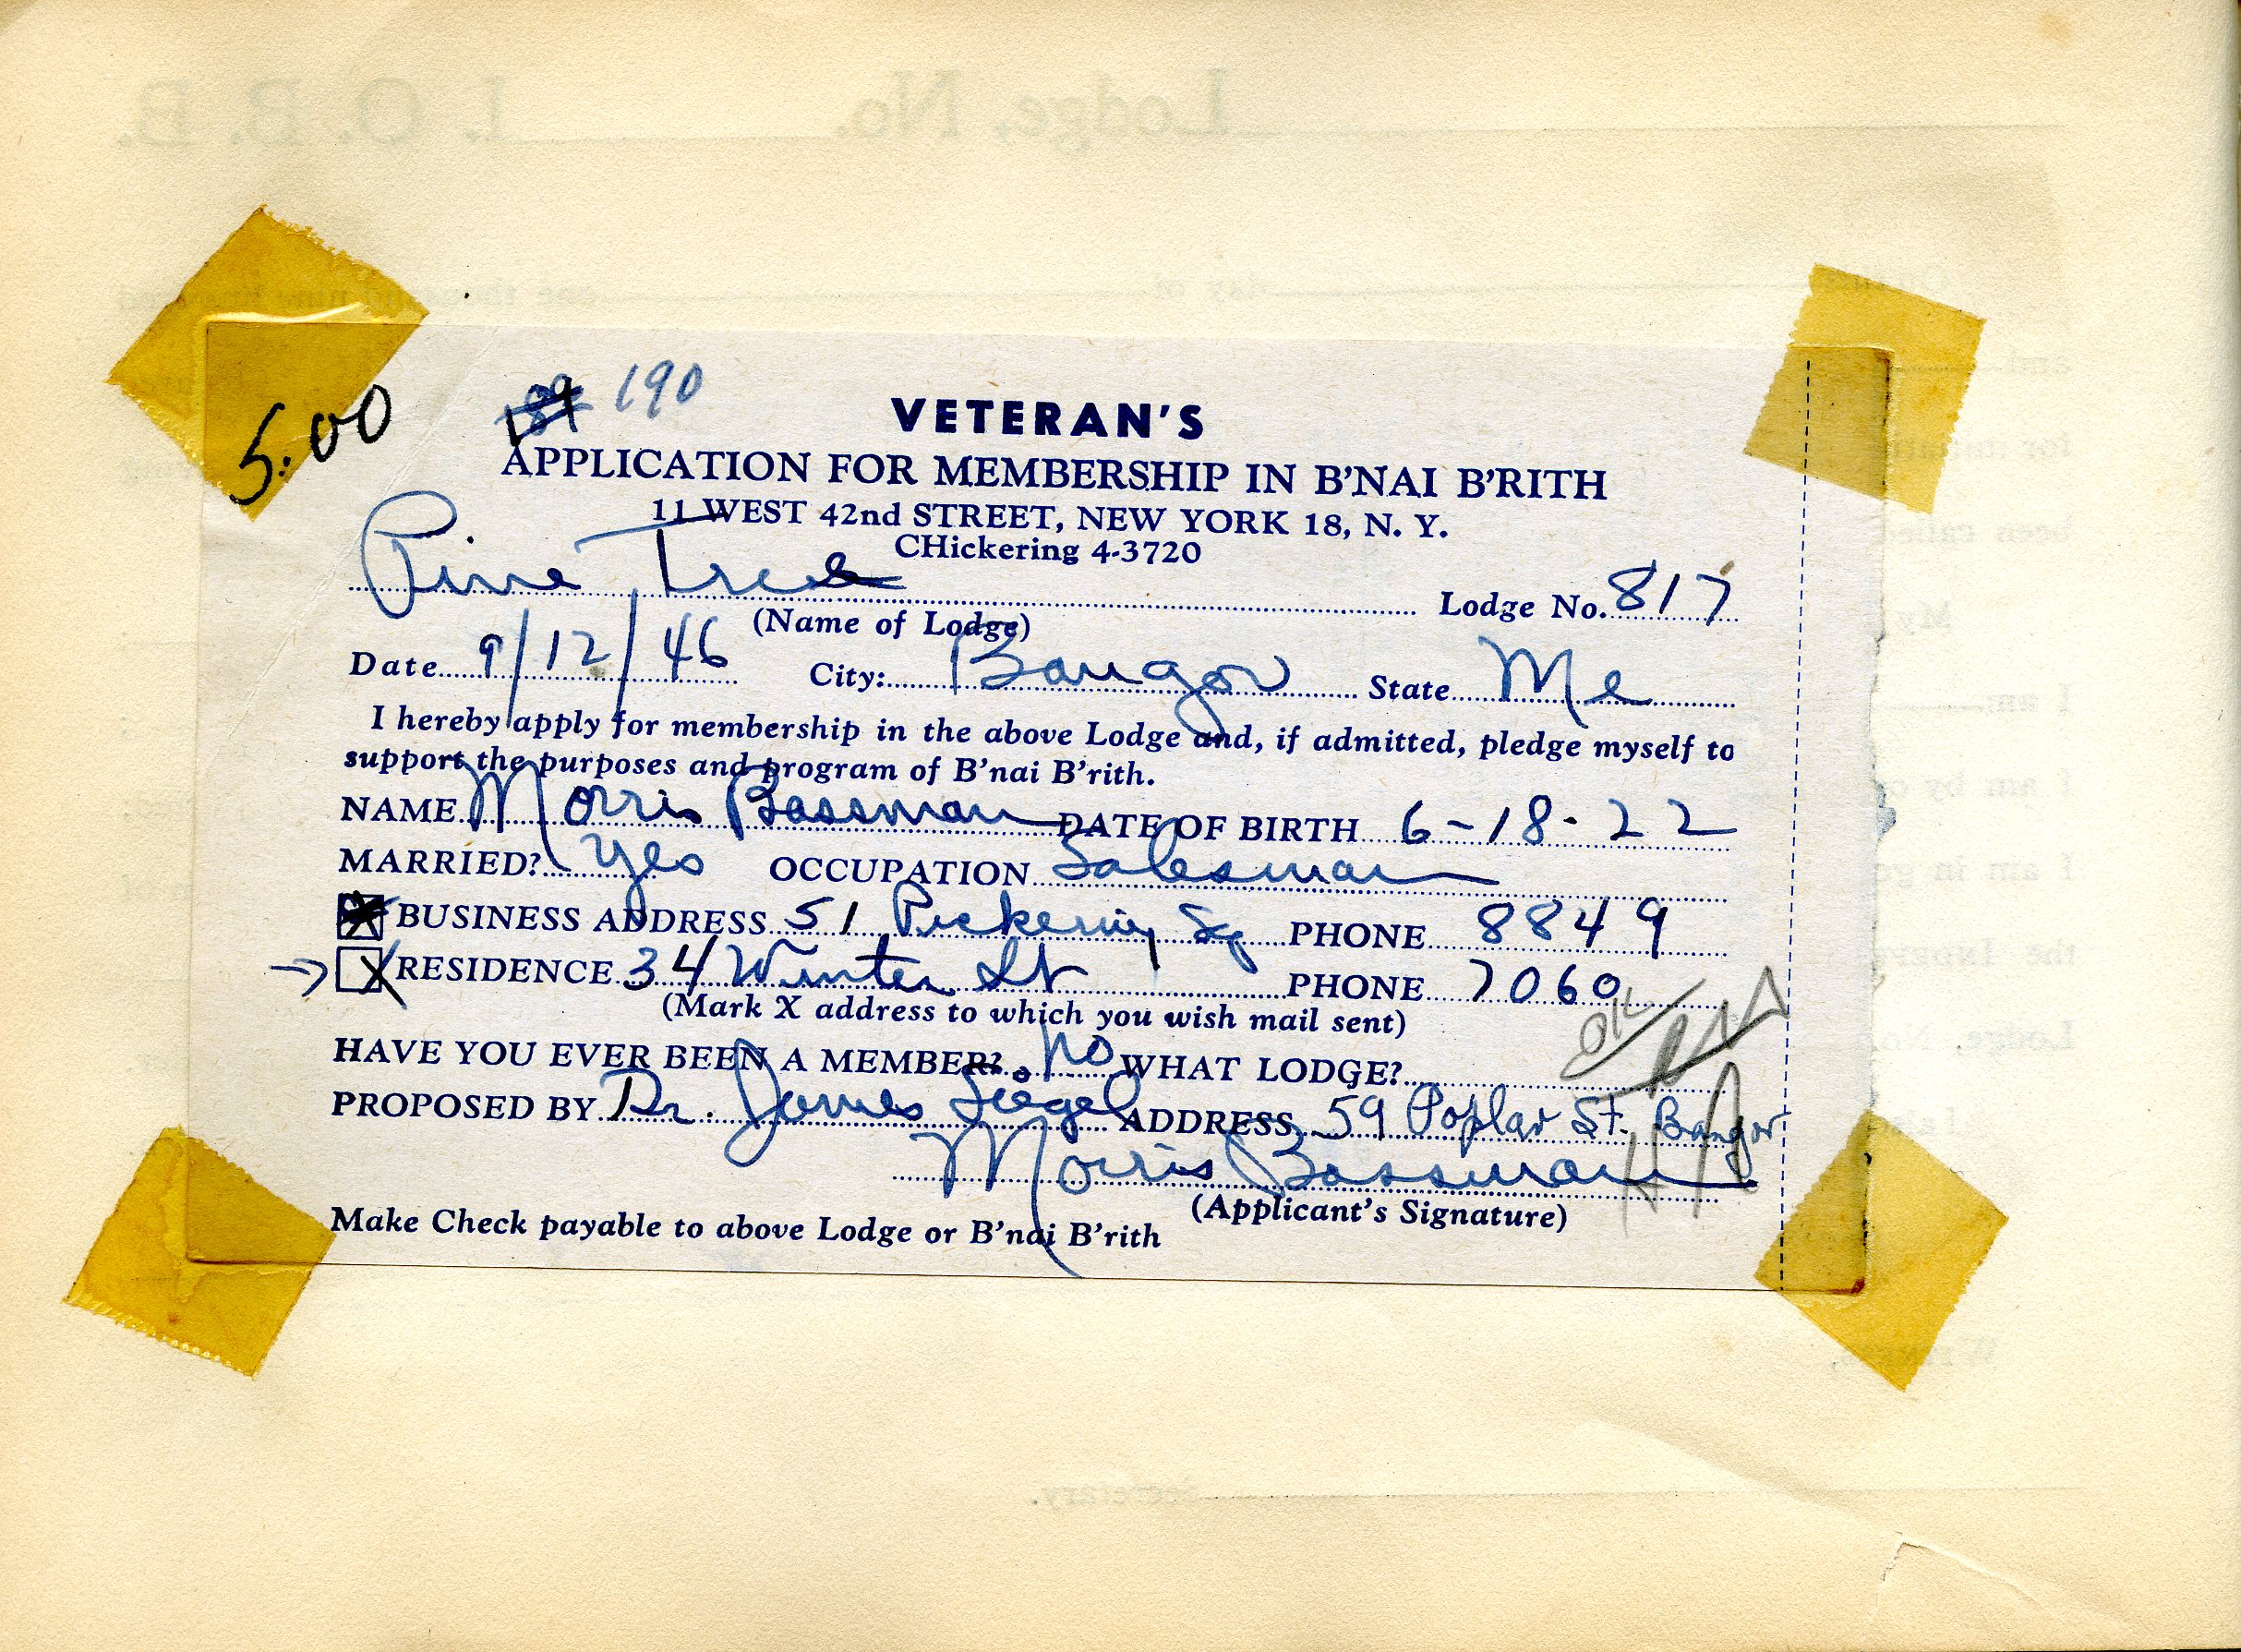 Lodge, No. I. O. B. B.
5.00
189 190
VETERAN'S
APPLICATION FOR MEMBERSHIP IN B'NAI B'RITH
11 WEST 42nd STREET, NEW YORK 18, N. Y.
CHickering 4-3720
Pine Tree Lodge No. 817
(Name of Lodge)
Date 9/12/46 City: Bangor State Me
I hereby apply for membership in the above Lodge and, if admitted, pledge myself to
support the purposes and program of B'nai B'rith.
NAME Morris Bassman DATE OF BIRTH 6-18-22
MARRIED? Yes OCCUPATION Salesman
BUSINESS ADDRESS 51 Pickering Sq PHONE 8849
X RESIDENCE 34 Winter St PHONE 7060
(Mark X address to which you wish mail sent)
OK
HAVE YOU EVER BEEN A MEMBER? no WHAT LODGE?
PROPOSED BY Dr. James Siegel ADDRESS 59 Poplar St. Bangor
Morris Bassman
(Applicant's Signature)
Make Check payable to above Lodge or B'nai B'rith
Secretary.